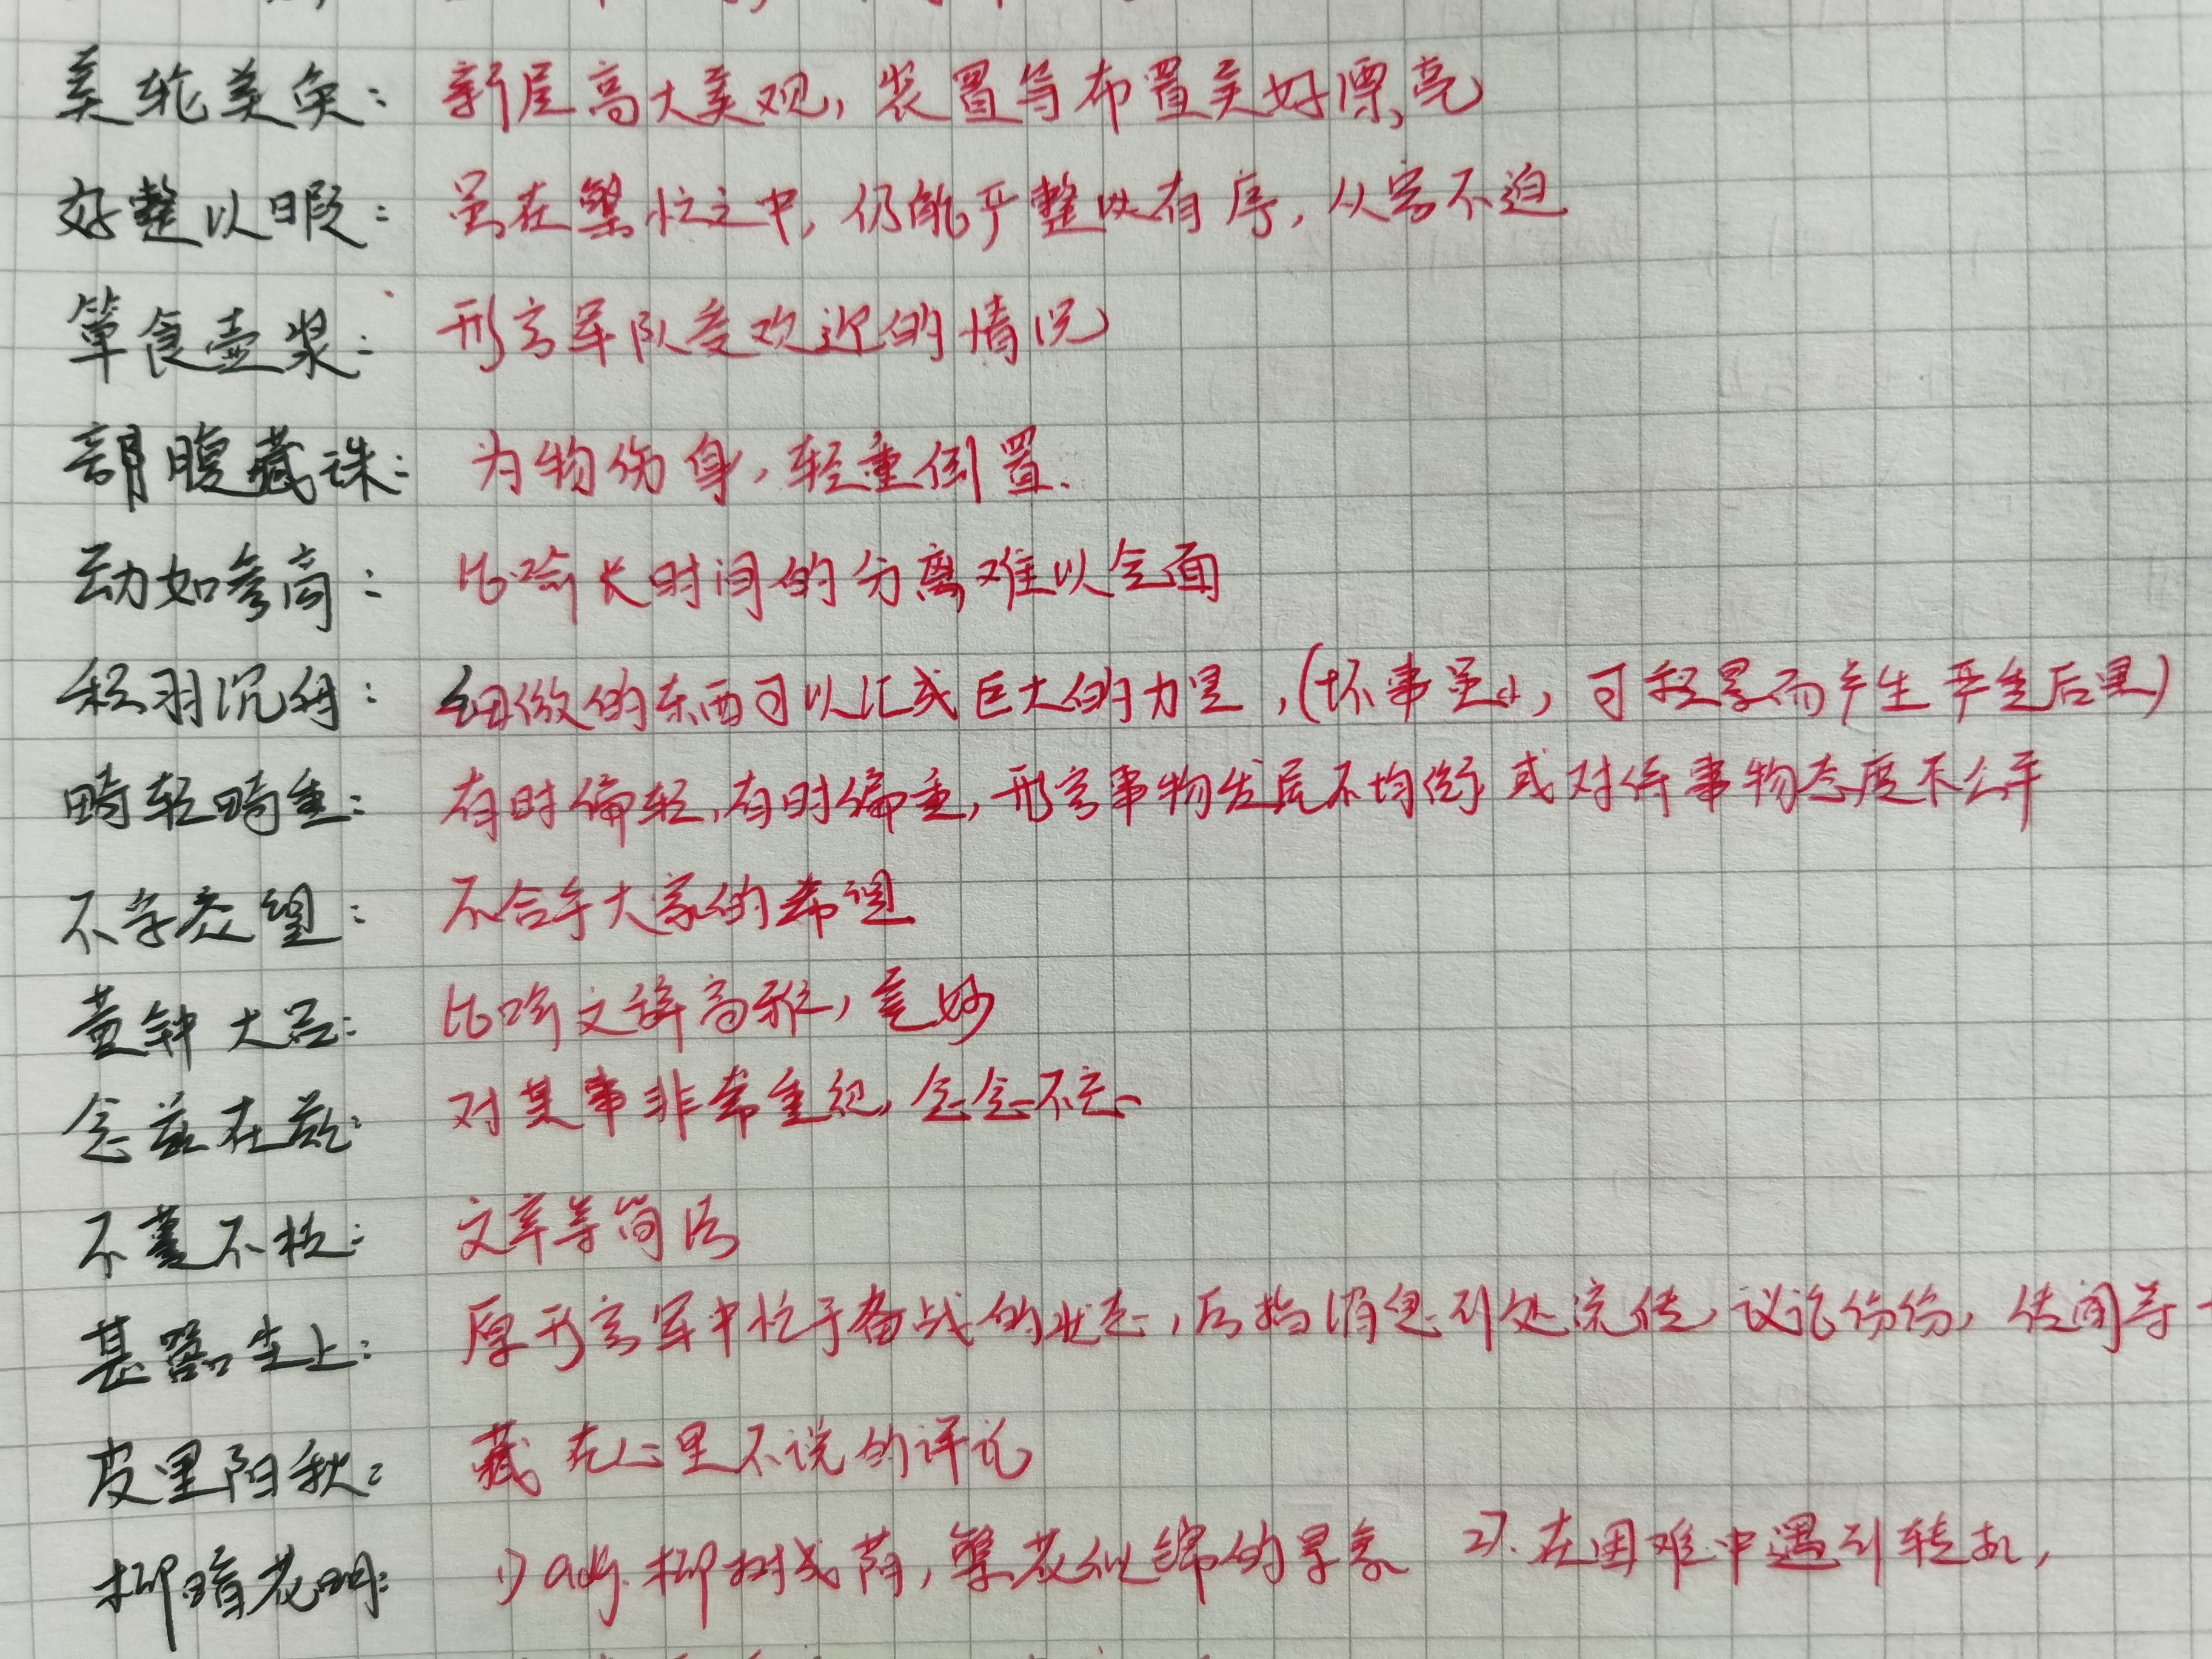 美轮美奂：新屋高大美观，装置等布置美好漂亮
好整以暇：虽在繁忙之中，仍能严整以有序，从容不迫
箪食壶浆：形容军队受欢迎的情况
剖腹藏珠：为物伤身，轻重倒置.
动如参商：比喻长时间的分离难以会面
积羽沉舟：细微的东西可以汇成巨大的力量，(坏事虽小，可积累而产生严重后果)
畸轻畸重：有时偏轻，有时偏重，形容事物发展不均衡 或对待事物态度不公平
不孚众望：不合乎大家的希望
黄钟大吕：比喻文辞高雅，美妙
念兹在兹：对某事非常重视，念念不忘
不蔓不枝：文章等简洁
甚嚣尘上：原形容军中忙于备战的状态，后指消息到处流传，议论纷纷，传闻等
皮里阳秋：藏在心里不说的评论
柳暗花明：1) adj. 柳树成荫，繁花似锦的景象 2). 在困难中遇到转机，